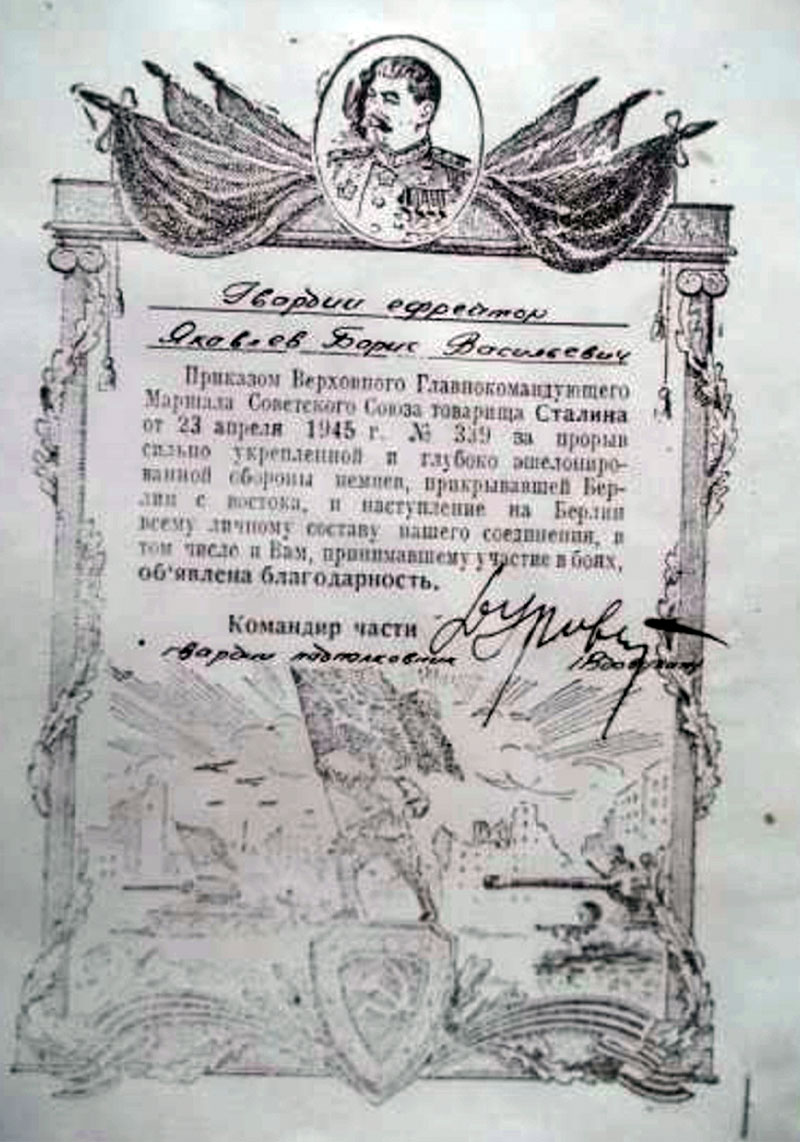 Гвардии ефрейтор
Яковлев Борис Васильевич
Приказом Верховного Главнокомандующего
Маршала Советского Союза товарища Сталина
от 23 апреля 1945 г. № 339 за прорыв
сильно укрепленной и глубоко эшелониро-
ванной обороны немцев, прикрывавшей Бер-
лин с востока, и наступление на Берлин
всему личному составу нашего соединения, в
том числе и Вам, принимавшему участие в боях,
об‘явлена благодарность.
Командир части
гвардии подполковник